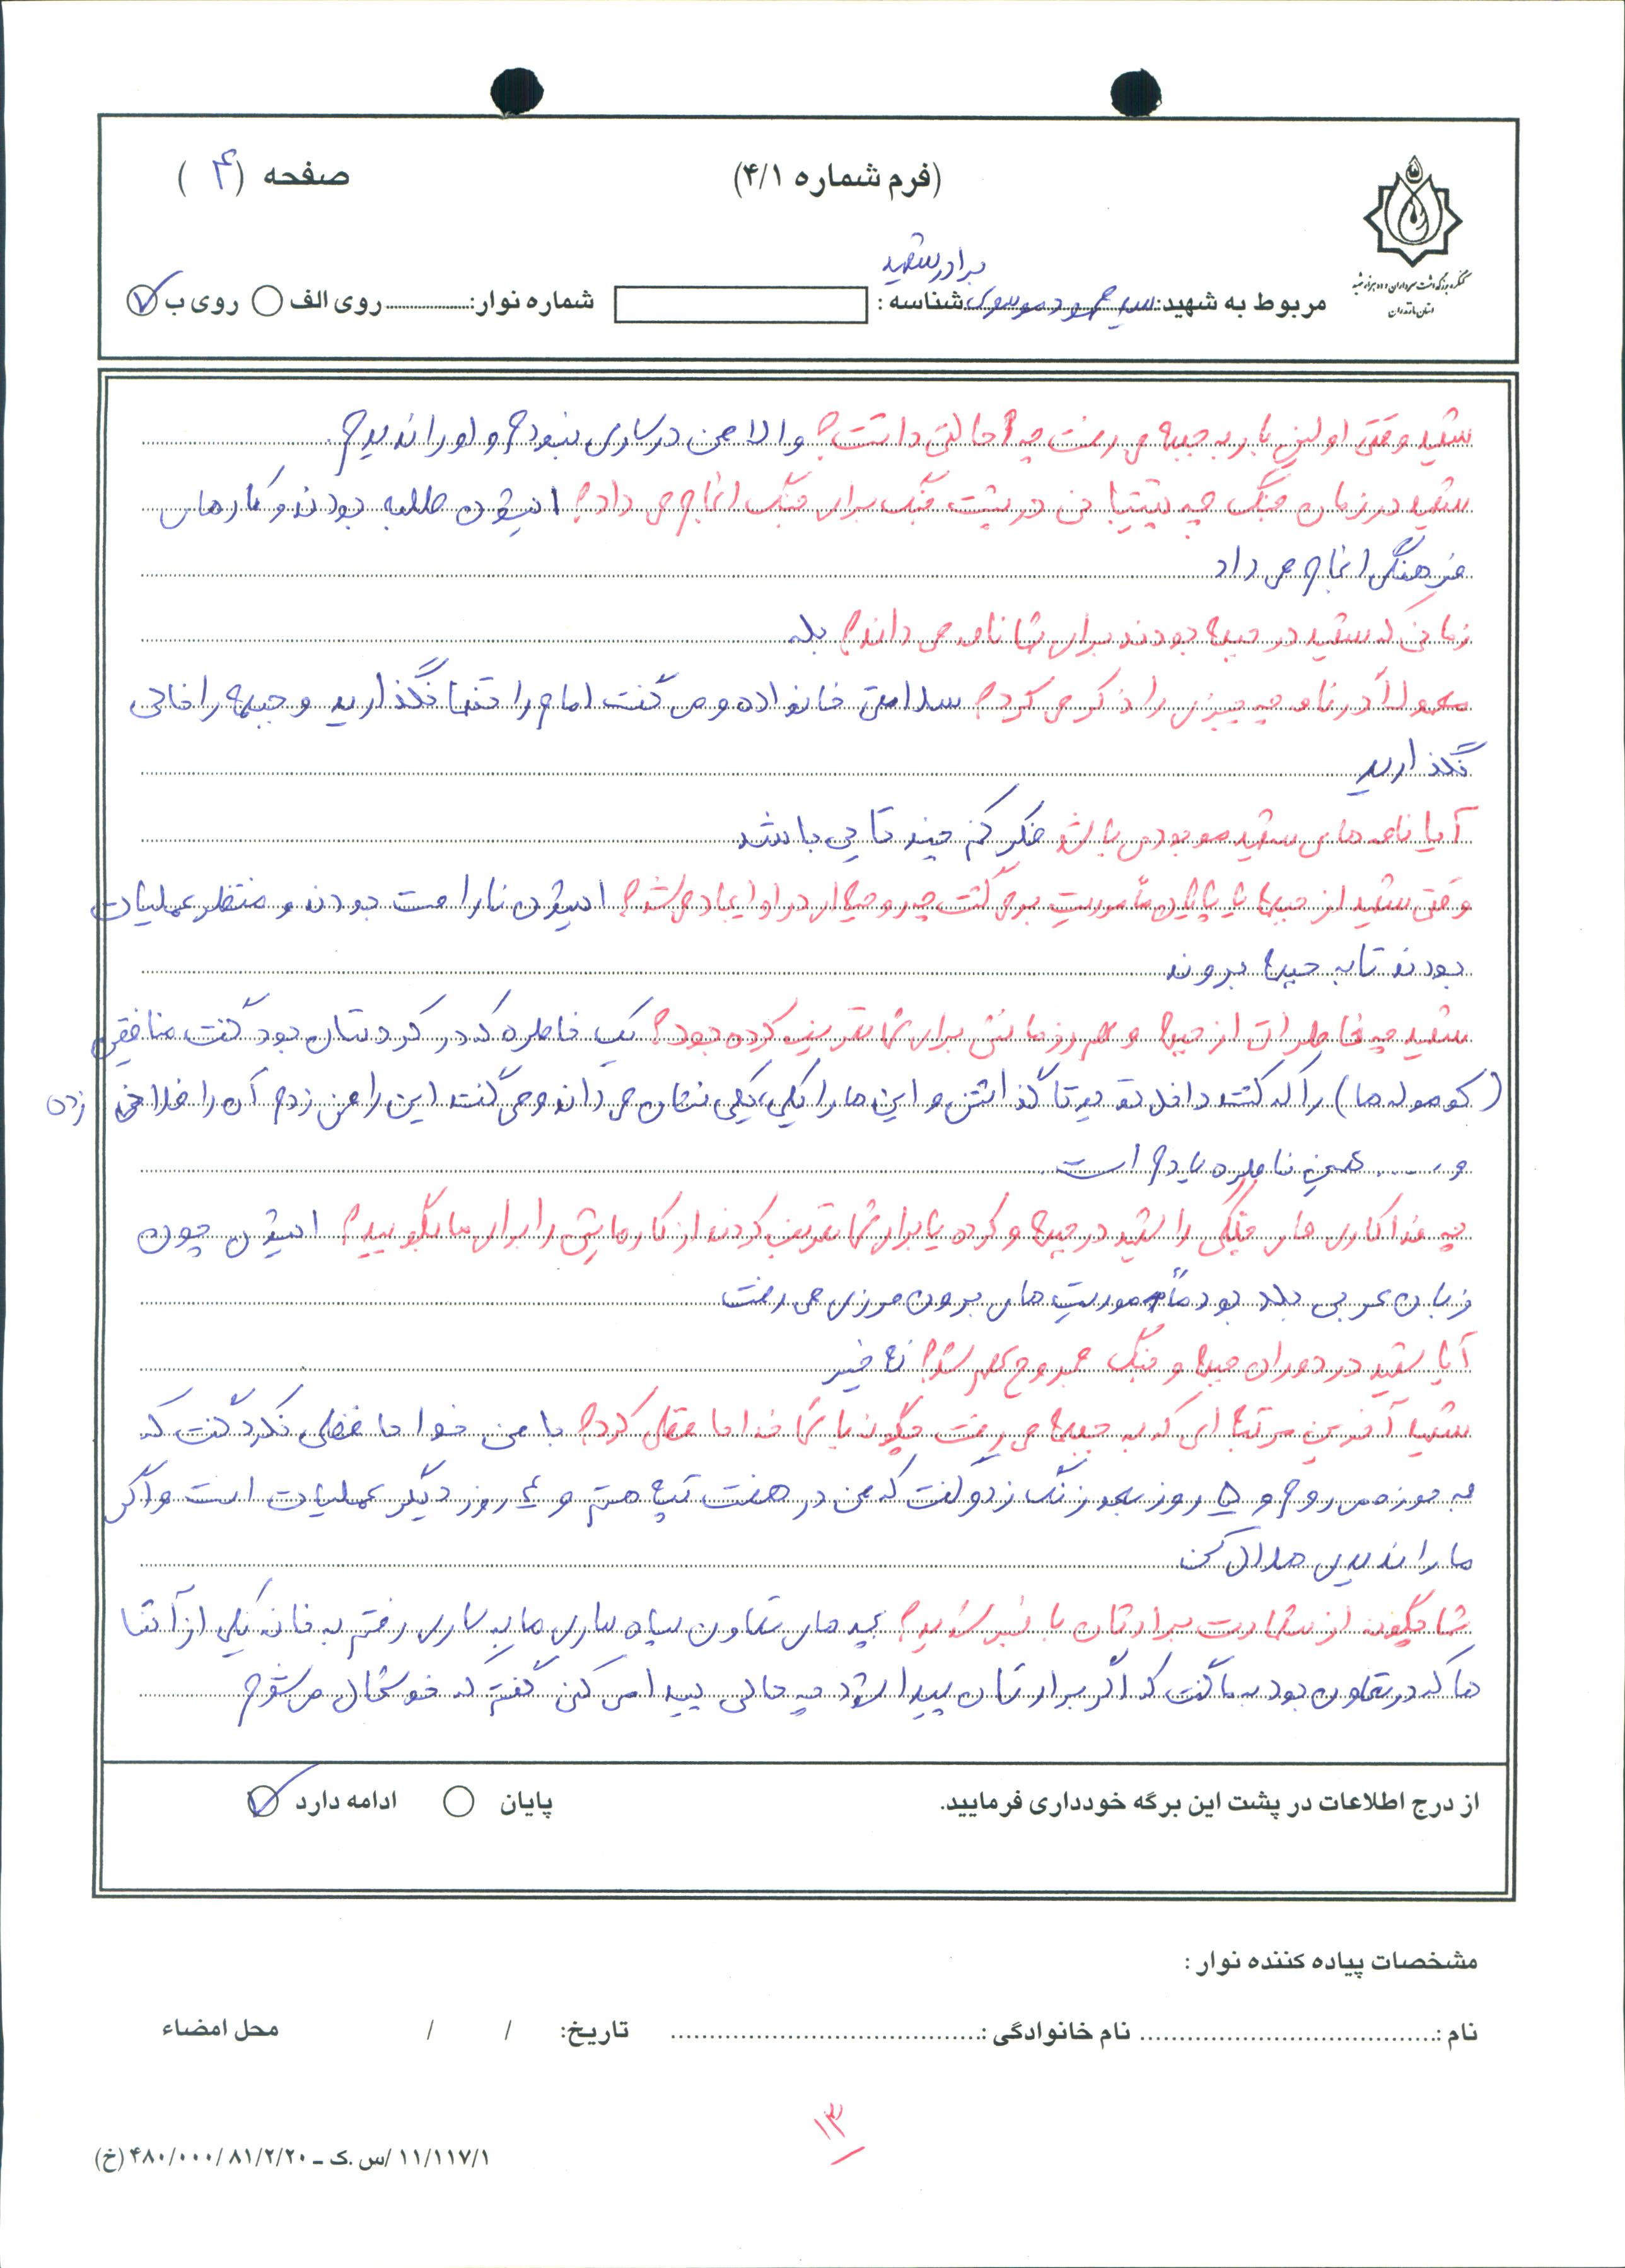 (فرم شماره ۴/۱)
صفحه (۴)
کنگره بزرگداشت سرداران و ده هزار شهید
استان مازندران
برادر شهید
مربوط به شهید: سید محمود موسوی شناسه: شماره نوار: روی الف روی ب
شهید وقتی اولین بار به جبهه می رفت چه حالتی داشت؟ والا من در ساری نبودم و او را ندیدم.
شهید در زمان جنگ چه پشتیبانی در پشت جنگ برای جنگ انجام می داد؟ ایشون طلبه بودند و کارهای
فرهنگی انجام می داد
زمانی که شهید در جبهه بودند برای شما نامه می دادند؟ بله
معمولاً در نامه چه چیزی را ذکر می کرد؟ سلامتی خانواده و می گفت امام را تنها نگذارید و جبهه را خالی
نگذارید
آیا نامه های شهید موجود می باشد فکر کنم چند تایی باشد
وقتی شهید از جبهه با پایان مأموریت برمی گشت چه روحیه ای در او ایجاد می شد؟ ایشون ناراحت بودند و منتظر عملیات
بودند تا به جبهه بروند
شهید چه خاطراتی از جبهه و هم رزمانش برای شما تعریف کرده بود؟ یک خاطره که در کردستان بود گفت منافقین
(کوموله ها) را که کشتند داخل تویوتا گذاشتن و این ها را یکی یکی نشان می دادند و می گفت این را من زدم آن را فلانی زده
و..... همین خاطره یادم است.
چه فداکاری های جنگی را شهید در جبهه کرده یا برای شما تعریف کردند از کارهایش را برای ما بگویید؟ ایشون چون
زبان عربی بلد بود مأموریت های برون مرزی می رفت
آیا شهید در دوران جبهه و جنگ مجروح هم شد؟ نه خیر
شهید آخرین مرتبه ای که به جبهه می رفت چگونه با شما خداحافظی کرد؟ با من خداحافظی نکرد گفت که
به حوزه می روم و ۵ روز بعد زنگ زد و گفت که من در هفت تپه هستم و ۴ روز دیگر عملیات است و اگر
ما را ندیدی حلال کن
شما چگونه از شهادت برادرتان با خبر شدید؟ بچه های تعاون سپاه ساری ما به ساری رفتم به خانه یکی از آشنا
ها که در تعاون بود به ما گفت که اگر برادرتان پیدا شود چه حالی پیدا می کنی گفتم که خوشحال می شوم
از درج اطلاعات در پشت این برگه خودداری فرمایید. پایان ادامه دارد
مشخصات پیاده کننده نوار:
نام: نام خانوادگی: تاریخ: / / محل امضاء
۱۳
۱۱/۱۱۷/۱ /س.ک ـ ۴۸۰/۰۰۰/۸۱/۲/۲۰ (خ)